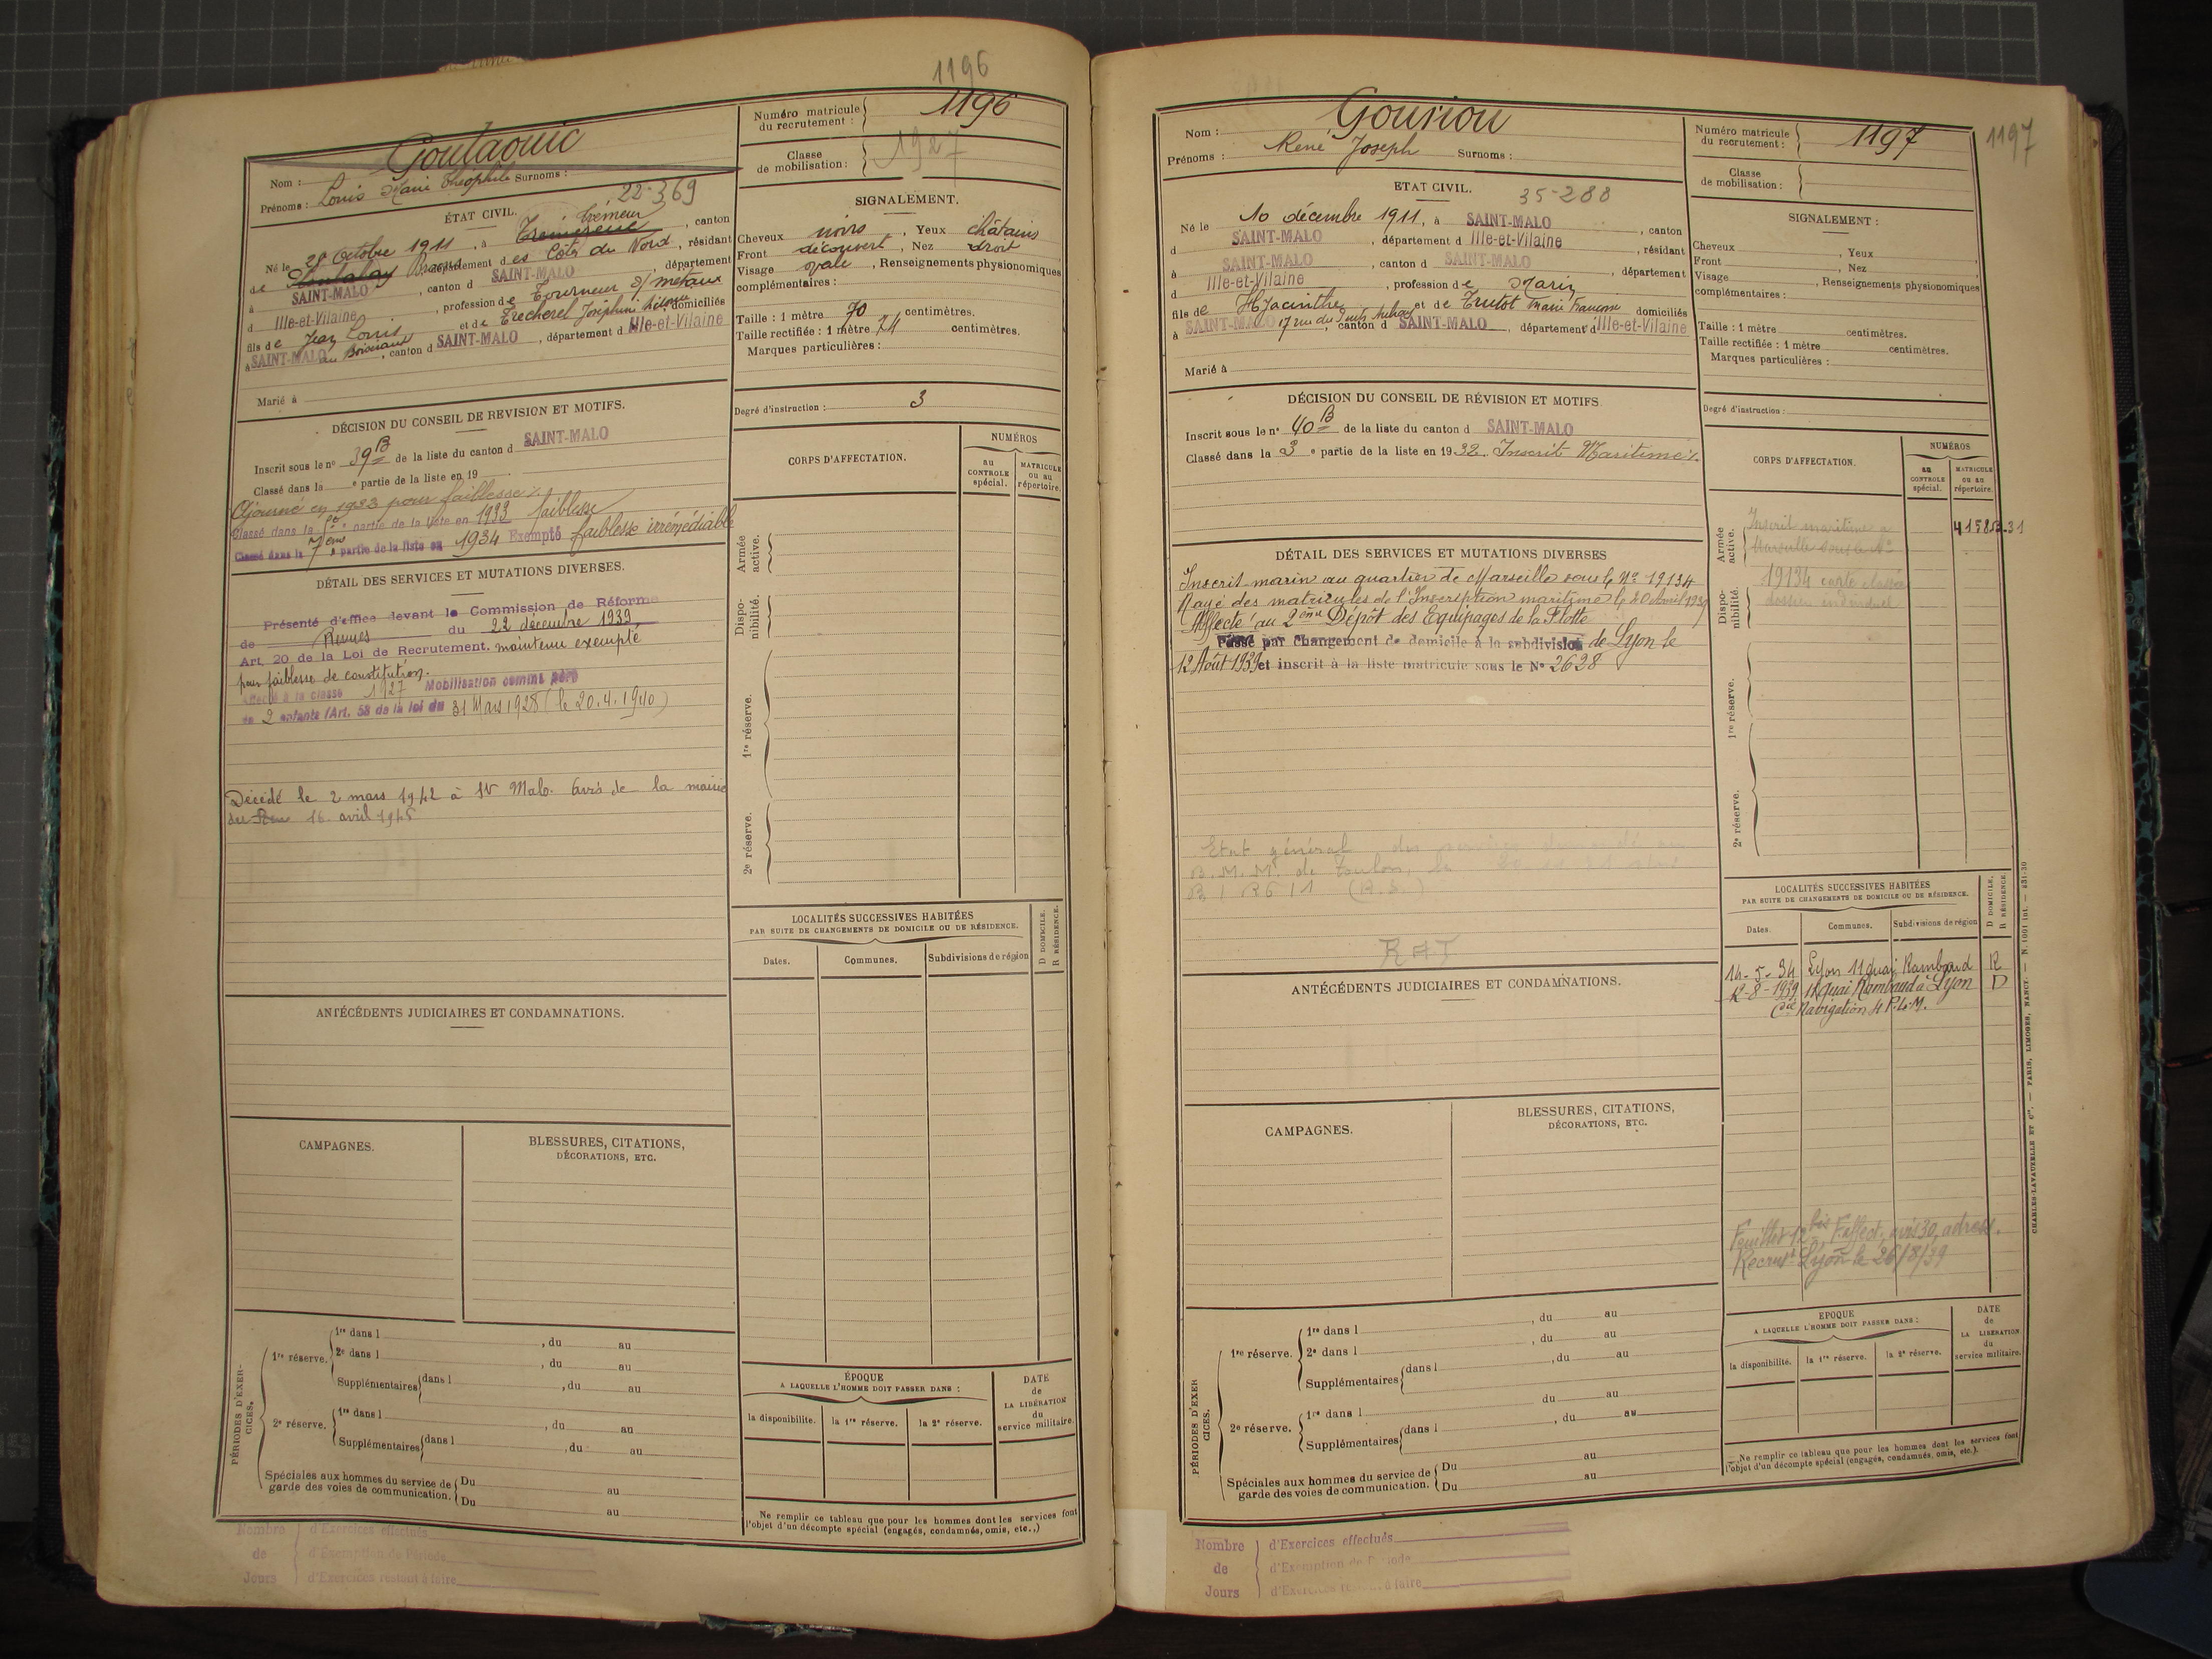 1196
Goutaouic
Nom :
Prénoms : Louis Marie Théophile Surnoms :
22-369
ÉTAT CIVIL.
Né le 28 Octobre 1911, à Trémereuc Trémeur, canton
de Broons, département des Côtes du Nord, résidant
à SAINT-MALO, canton d SAINT-MALO, département
d Ille-et-Vilaine, profession de Tourneur s/ métaux
fils de Jean Louis et de Trecherel Joséphine domiciliés
à SAINT-MALO, canton d SAINT-MALO, département d Ille-et-Vilaine
Marié à
Numéro matricule du recrutement : 1196
Classe de mobilisation : 1927
SIGNALEMENT.
Cheveux noirs, Yeux châtains
Front découvert, Nez droit
Visage ovale, Renseignements physionomiques
complémentaires :
Taille : 1 mètre 70 centimètres.
Taille rectifiée : 1 mètre 74 centimètres.
Marques particulières :
Degré d'instruction : 3
DÉCISION DU CONSEIL DE REVISION ET MOTIFS.
Inscrit sous le n° 39 B de la liste du canton d SAINT-MALO
Classé dans la e partie de la liste en 19
Ajourné en 1933 pour faiblesse
Classé dans la partie de la liste en 1933 faiblesse
Classé dans la 7ème partie de la liste en 1934 Exempté faiblesse irrémédiable
DÉTAIL DES SERVICES ET MUTATIONS DIVERSES.
Présenté d'office devant la Commission de Réforme
de Rennes du 22 décembre 1939
Art. 20 de la Loi de Recrutement. maintenu exempté
pour faiblesse de constitution.
Affecté à la classe 1927 Mobilisation comme père
de 2 enfants (Art. 58 de la loi du 31 Mars 1928 (le 20.4.1940)
Décédé le 2 mars 1942 à St Malo. Avis de la mairie
du 16 avril 1945
CORPS D'AFFECTATION.
NUMÉROS
au CONTROLE spécial.
MATRICULE ou au répertoire.
Armée active.
Disponibilité.
1re réserve.
2e réserve.
LOCALITÉS SUCCESSIVES HABITÉES
PAR SUITE DE CHANGEMENTS DE DOMICILE OU DE RÉSIDENCE.
D DOMICILE.
R RÉSIDENCE.
Dates.
Communes.
Subdivisions de région
ANTÉCÉDENTS JUDICIAIRES ET CONDAMNATIONS.
CAMPAGNES.
BLESSURES, CITATIONS,
DÉCORATIONS, ETC.
PÉRIODES D'EXERCICES.
1re réserve. 1re dans l , du au
2e dans l , du au
Supplémentaires dans l , du au
2e réserve. 1re dans l , du au
Supplémentaires dans l , du au
Spéciales aux hommes du service de garde des voies de communication. Du au
Du au
ÉPOQUE
A LAQUELLE L'HOMME DOIT PASSER DANS :
la disponibilité.
la 1re réserve.
la 2e réserve.
DATE
de
LA LIBÉRATION
du
service militaire.
Ne remplir ce tableau que pour les hommes dont les services font
l'objet d'un décompte spécial (engagés, condamnés, omis, etc..)
Nombre de Jours
d'Exercices effectués
d'Exemption de Période
d'Exercices restant à faire
1197
Nom : Gouriou
Prénoms : René Joseph Surnoms :
ETAT CIVIL. 35-288
Né le 10 décembre 1911, à SAINT-MALO, canton
d SAINT-MALO, département d Ille-et-Vilaine, résidant
à SAINT-MALO, canton d SAINT-MALO, département
d Ille-et-Vilaine, profession de Marin
fils de Hyacinthe et de Trutot Marie Françoise domiciliés
à SAINT-MALO 17 rue du Puits, canton d SAINT-MALO, département d Ille-et-Vilaine
Marié à
Numéro matricule du recrutement : 1197
Classe de mobilisation :
SIGNALEMENT :
Cheveux , Yeux
Front , Nez
Visage , Renseignements physionomiques
complémentaires :
Taille : 1 mètre centimètres.
Taille rectifiée : 1 mètre centimètres.
Marques particulières :
Degré d'instruction :
DÉCISION DU CONSEIL DE RÉVISION ET MOTIFS
Inscrit sous le n° 40 B de la liste du canton d SAINT-MALO
Classé dans la 3 e partie de la liste en 1932. Inscrit Maritime
DÉTAIL DES SERVICES ET MUTATIONS DIVERSES
Inscrit marin au quartier de Marseille sous le N° 19134
Rayé des matricules de l'Inscription maritime le 20 Avril 1939
Affecté au 2ème Dépôt des Equipages de la Flotte
Passé par changement de domicile à la subdivision de Lyon le
12 Août 1939 et inscrit à la liste matricule sous le N° 2638
Etat général des services
B.M.M. de Toulon, le
CORPS D'AFFECTATION.
NUMÉROS
au CONTROLE spécial.
MATRICULE ou au répertoire.
Armée active.
Inscrit maritime à
Marseille sous le N°
19134 carte classée
dossier individuel
Disponibilité.
1re réserve.
2e réserve.
LOCALITÉS SUCCESSIVES HABITÉES
PAR SUITE DE CHANGEMENTS DE DOMICILE OU DE RÉSIDENCE.
D DOMICILE.
R RÉSIDENCE.
Dates.
Communes.
Subdivisions de région
14-5-34 Lyon 11 quai Rambaud R
12-8-1939 11 Quai Rambaud à Lyon D
Cie Navigation H.P.L.M.
Recrut Lyon le 26/8/39
ANTÉCÉDENTS JUDICIAIRES ET CONDAMNATIONS.
CAMPAGNES.
BLESSURES, CITATIONS,
DÉCORATIONS, ETC.
PÉRIODES D'EXERCICES.
1re réserve. 1re dans l , du au
2e dans l , du au
Supplémentaires dans l , du au
du au
2e réserve. 1re dans l , du au
Supplémentaires dans l
Spéciales aux hommes du service de garde des voies de communication. Du au
Du au
EPOQUE
A LAQUELLE L'HOMME DOIT PASSER DANS :
la disponibilité.
la 1re réserve.
la 2e réserve.
DATE
de
LA LIBÉRATION
du
service militaire.
Ne remplir ce tableau que pour les hommes dont les services font
l'objet d'un décompte spécial (engagés, condamnés, omis, etc.).
CHARLES-LAVAUZELLE ET Cie. — PARIS, LIMOGES, NANCY.
Nombre de Jours
d'Exercices effectués
d'Exemption de Période
d'Exercices restant à faire